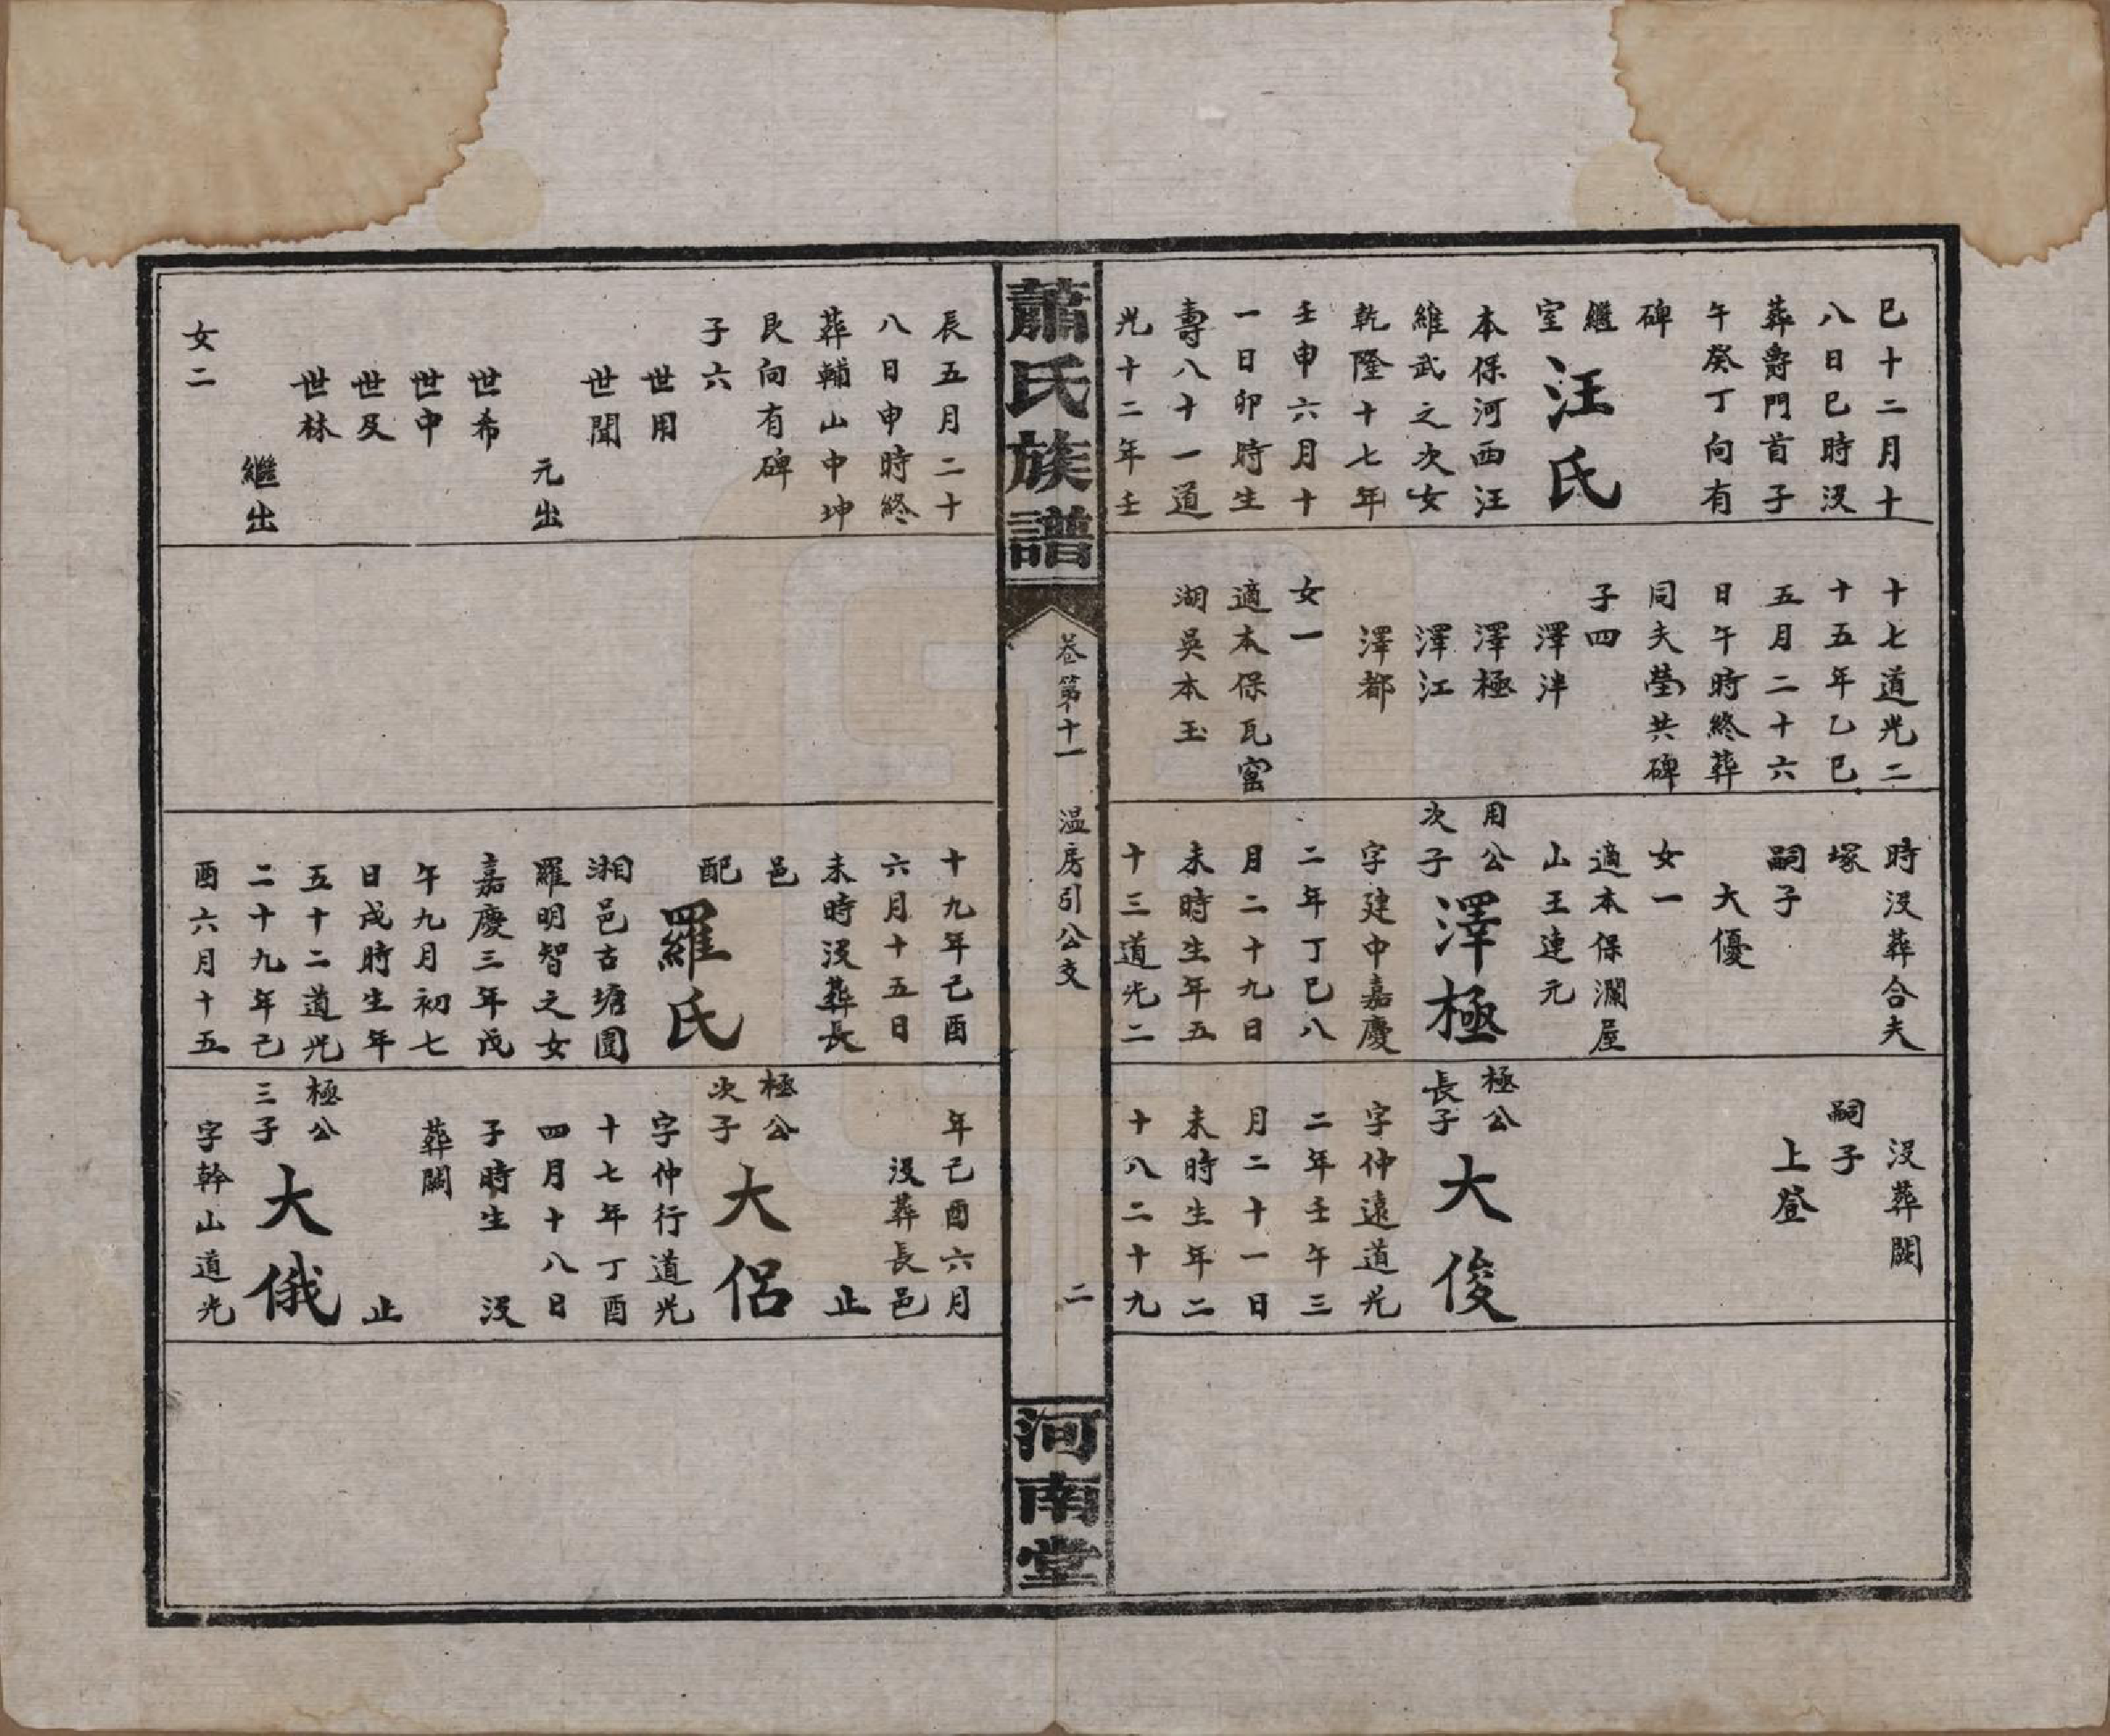 巳十二月十
八日巳時沒
葬爵門首子
午癸丁向有
碑
繼室
汪氏
本保河西汪
維武之次女
乾隆十七年
壬申六月十
一日卯時生
壽八十一道
光十二年壬
十七道光二
十五年乙巳
五月二十六
日午時終葬
同夫塋共碑
子四
澤泮
澤極
澤江
澤都
女一
適本保瓦窰
湖吳本玉
時沒葬合夫
塚
嗣子
大優
女一
適本保瀾屋
山王連元
用公次子
澤極
字建中嘉慶
二年丁巳八
月二十九日
未時生年五
十三道光二
沒葬闕
嗣子
上登
極公長子
大俊
字仲遠道光
二年壬午三
月二十一日
未時生年二
十八二十九
蕭氏族譜
卷第十一
温房引公支
二
河南堂
辰五月二十
八日申時終
葬輔山中坤
艮向有碑
子六
世用
世聞
元出
世希
世中
世及
世林
繼出
女二
十九年己酉
六月十五日
未時沒葬長
邑
配
羅氏
湘邑古塘圍
羅明智之女
嘉慶三年戊
午九月初七
日戌時生年
五十二道光
二十九年己
酉六月十五
年己酉六月
沒葬長邑
止
極公次子
大侶
字仲行道光
十七年丁酉
四月十八日
子時生 沒
葬闕
止
極公三子
大俄
字幹山道光